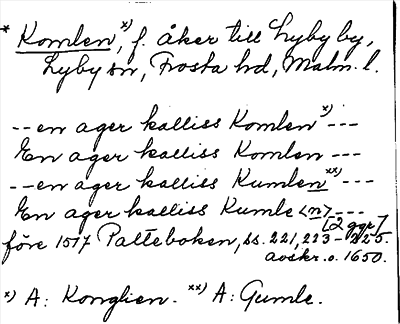 * Komlen, x) f. åker till Lyby by,
Lyby sn, Frosta hd, Malm. l.
-- en ager kalliss Komlen x) ---
En ager kalliss Komlen ---
-- en ager kalliss Kumlen xx) ---
En ager kalliss Kumle <n> ---
[2 ggr]
före 1517 Palteboken, ss. 221, 223-225.
avskr. o. 1650.
x) A: Konglien. xx) A: Gumle.